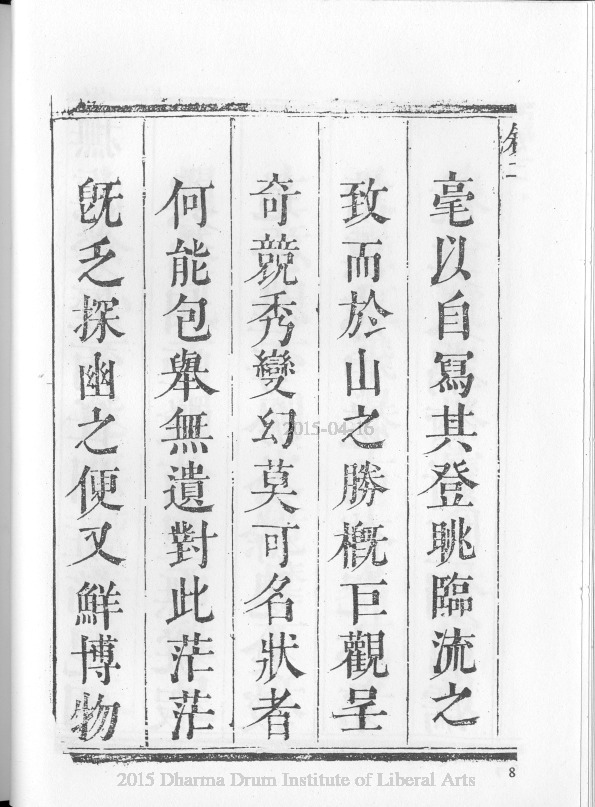 毫以自冩其登眺臨流之
致而於山之勝槪巨觀呈
奇競秀變幻莫可名狀者
何能包舉無遺對此茫茫
旣乏探幽之便又鮮博物
2015-04-16
8
2015 Dharma Drum Institute of Liberal Arts